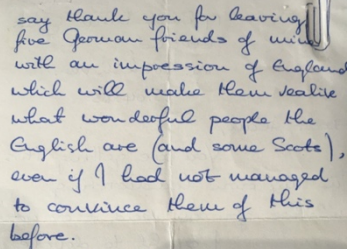 say thank you for leaving
five German friends of mine
with an impression of England
which will make them realise
what wonderful people the
English are (and some Scots),
even if I had not managed
to convince them of this
before.